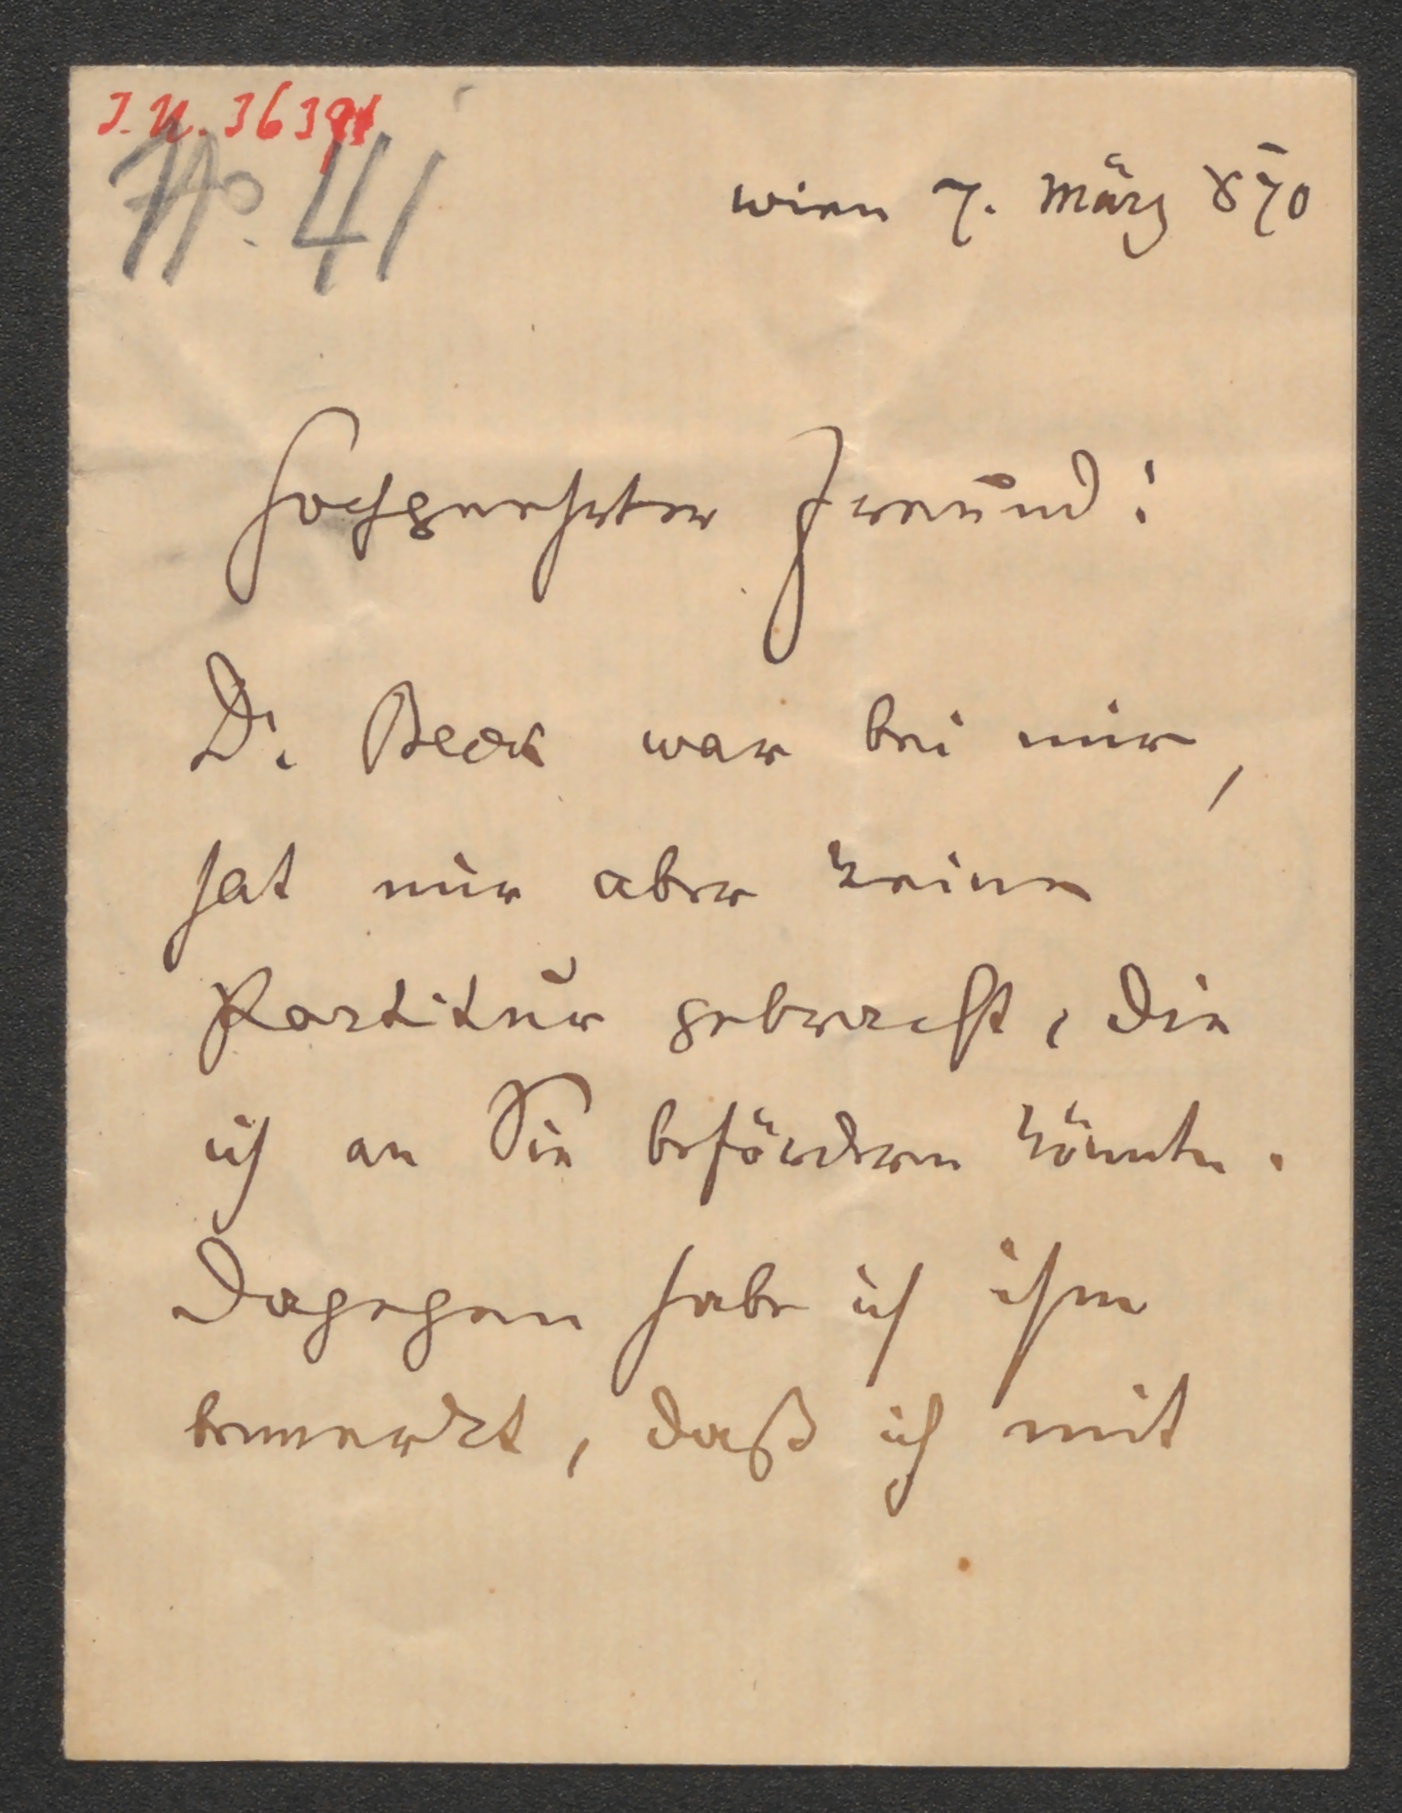 J.N. 36391
No. 41
Wien 7. März 870
Hochgeehrter Freund!
Dr. Beck war bei mir,
hat mir aber keine
Partitur gebracht, die
ich an Sie befördern könnte.
Dagegen habe ich ihm
bemerkt, daß ich mit